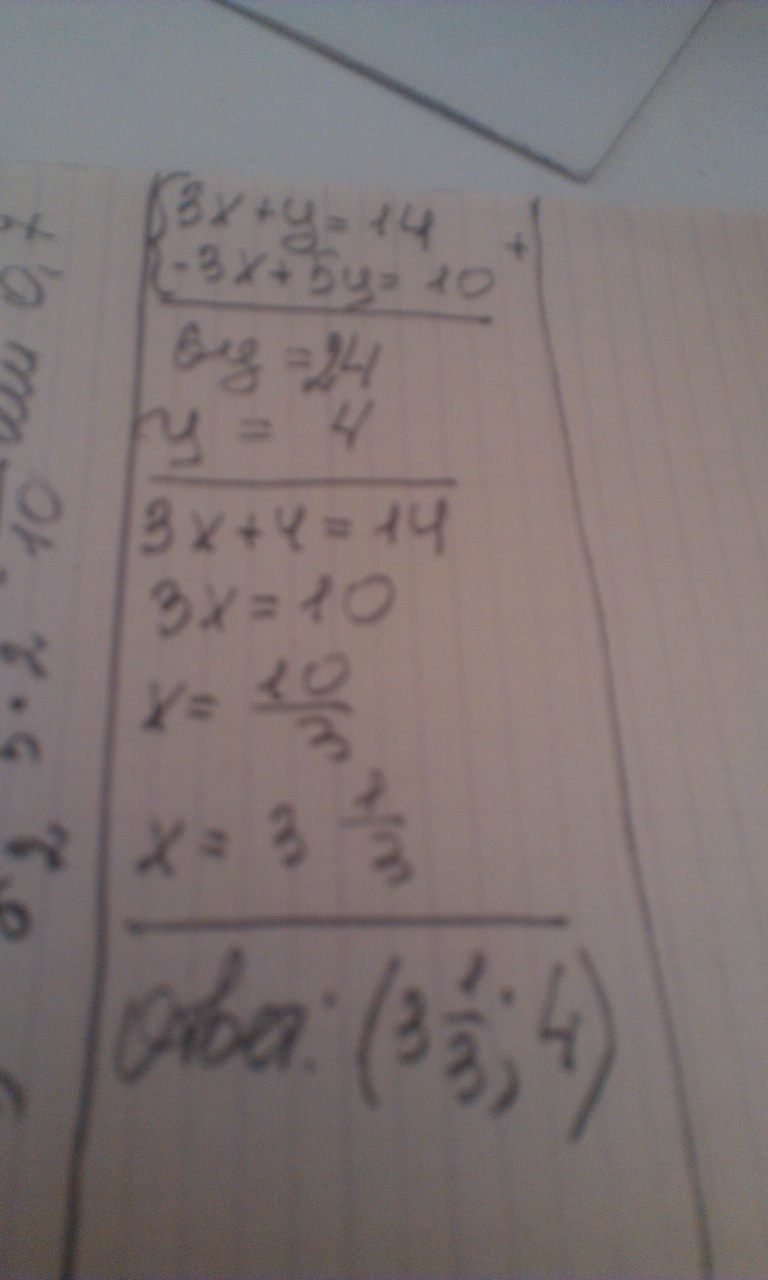 {3x+y=14
{-3x+5y=10 +
6y=24
y = 4
3x+4=14
3x=10
x= 10/3
x= 3 1/3
Ответ: (3 1/3; 4)
0,7
10
5·2
2